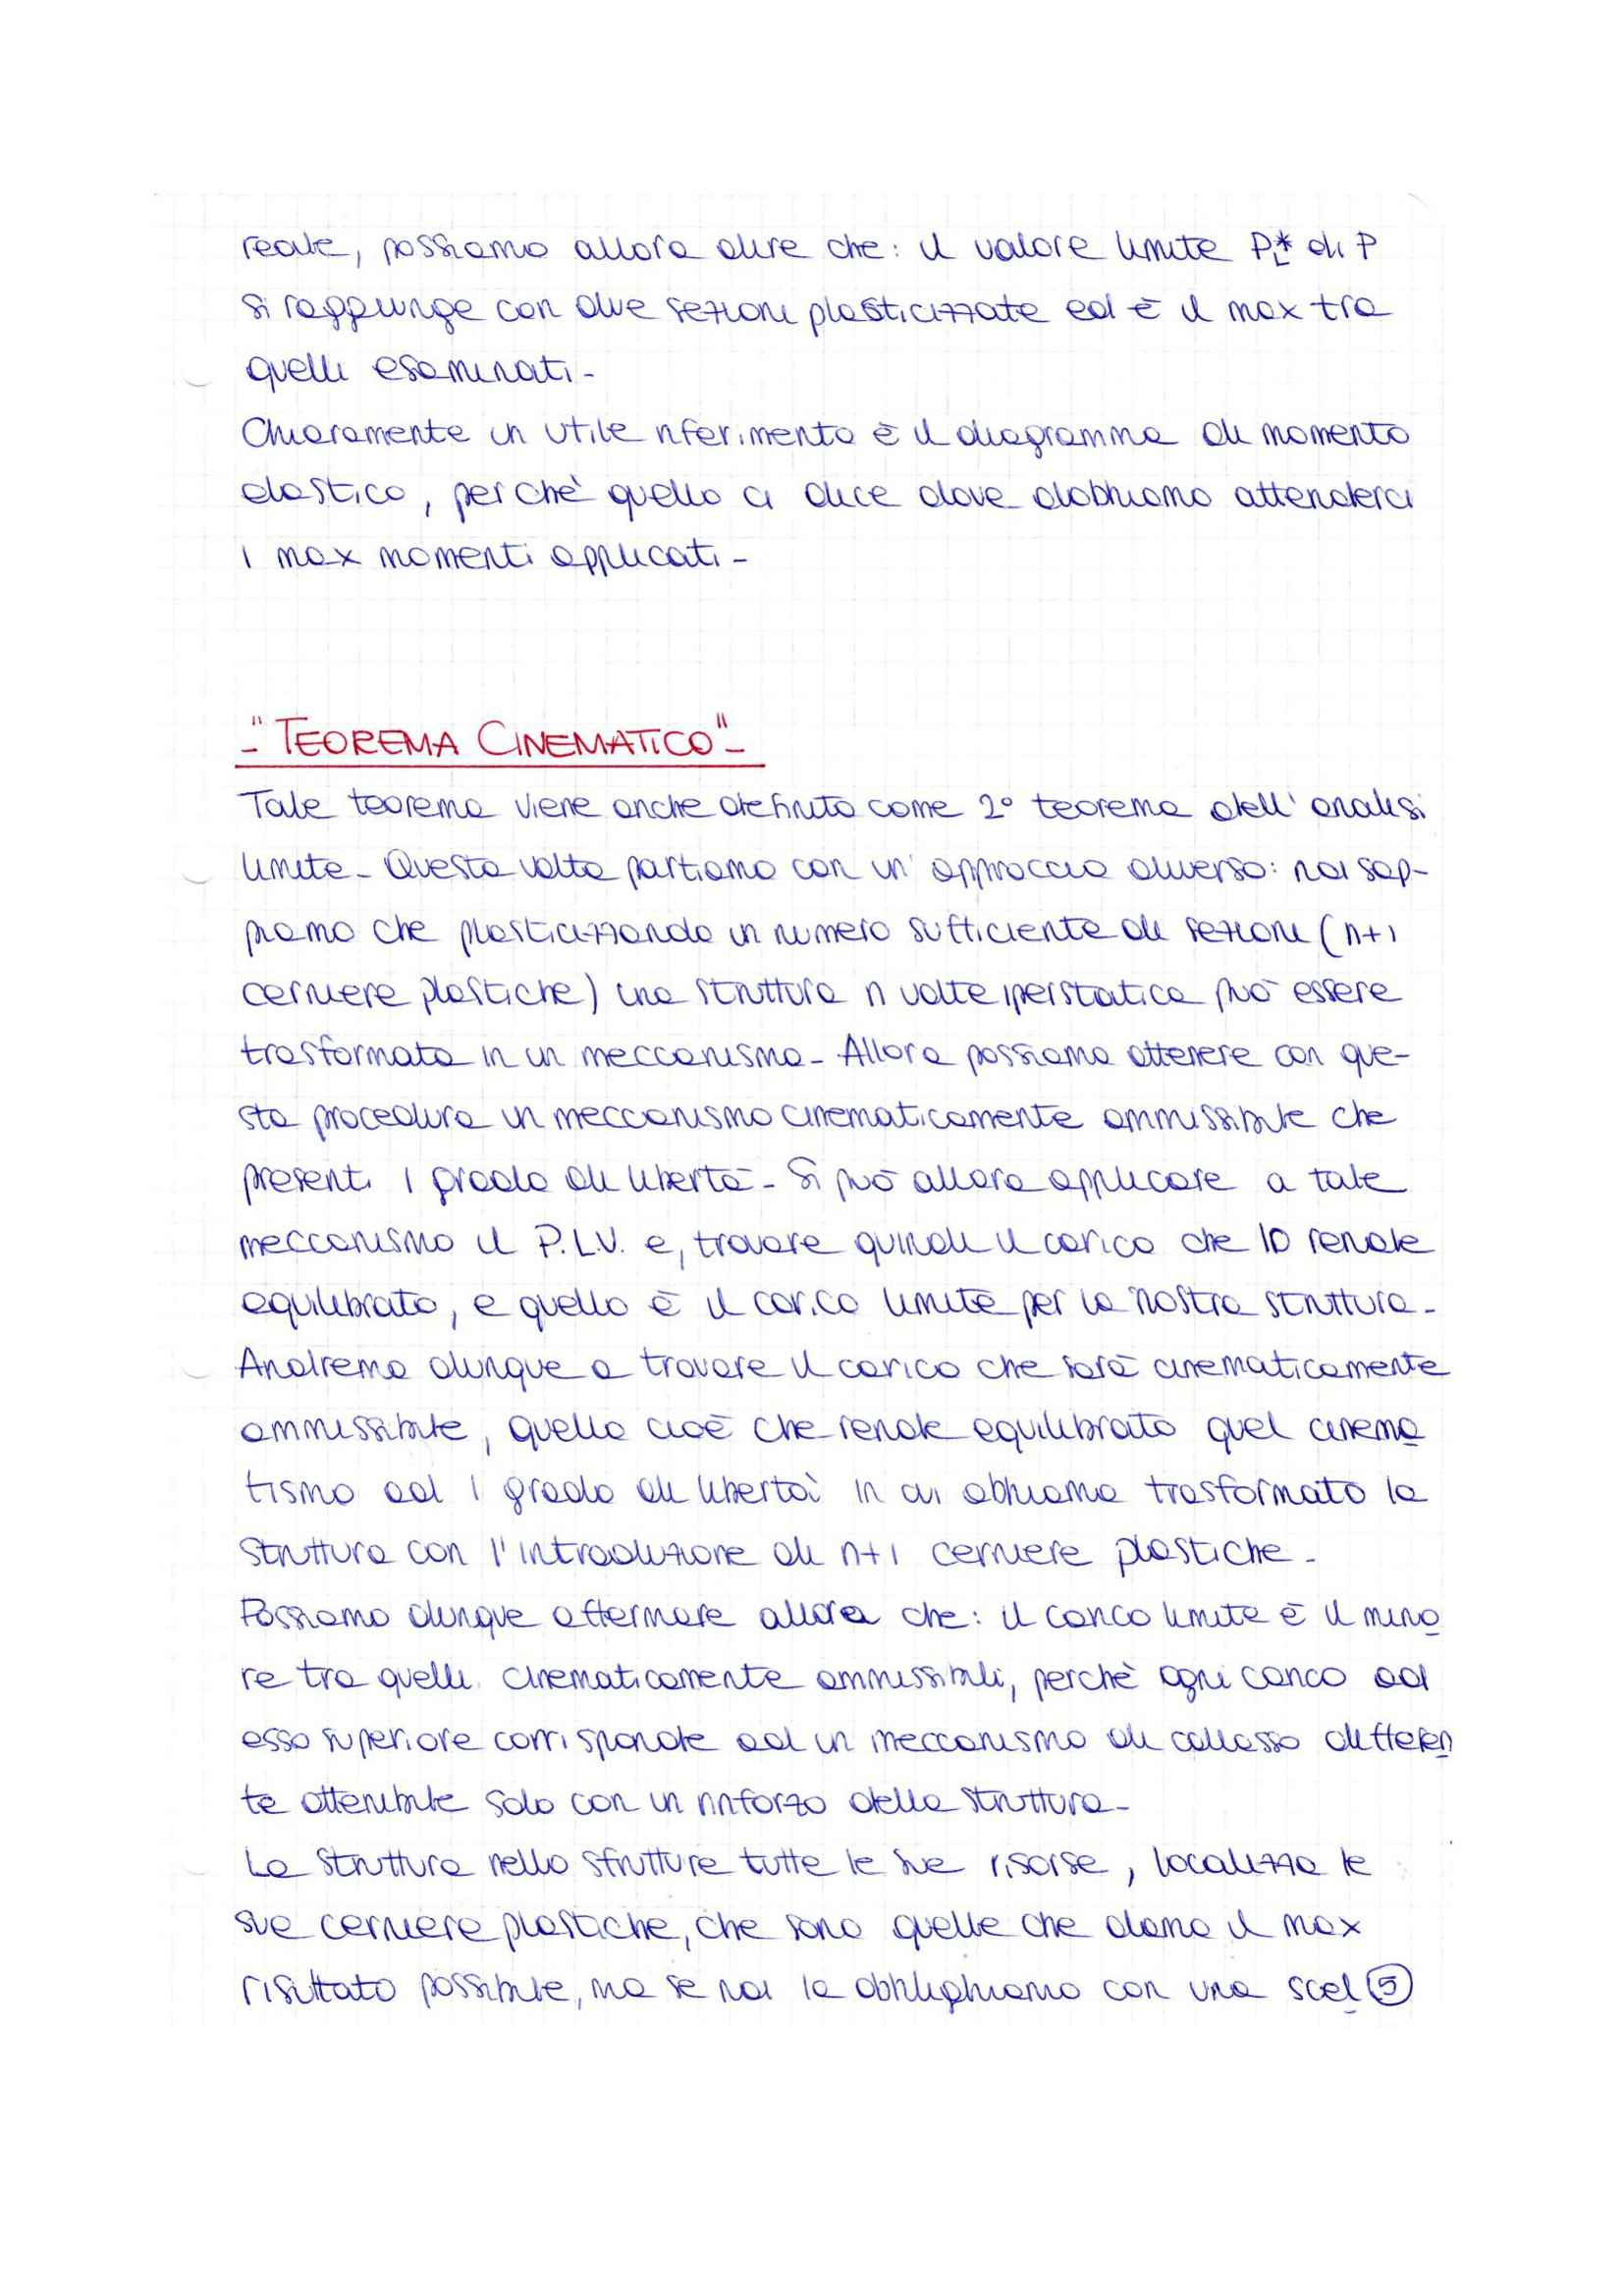 reale, possiamo allora dire che: il valore limite P_L* di P
si raggiunge con due sezioni plasticizzate ed è il max tra
quelli esaminati-
Chiaramente un utile riferimento è il diagramma di momento
elastico, perchè quello ci dice dove dobbiamo attenderci
i max momenti applicati-
-"TEOREMA CINEMATICO"-
Tale teorema viene anche definito come 2° teorema dell'analisi
limite- Questa volta partiamo con un'approccio diverso: noi sap-
piamo che plasticizzando un numero sufficiente di sezioni (n+1
cerniere plastiche) una struttura n volte iperstatica può essere
trasformata in un meccanismo- Allora possiamo ottenere con que-
sta procedura un meccanismo cinematicamente ammissibile che
presenti 1 grado di libertà- Si può allora applicare a tale
meccanismo il P.L.V. e, trovare quindi il carico che lo rende
equilibrato, e quello è il carico limite per la nostra struttura-
Andremo dunque a trovare il carico che sarà cinematicamente
ammissibile, quello cioè che rende equilibrato quel cinema
tismo ad 1 grado di libertà in cui abbiamo trasformato la
struttura con l'introduzione di n+1 cerniere plastiche-
Possiamo dunque affermare allora che: il carico limite è il mino
re tra quelli cinematicamente ammissibili, perchè ogni carico ad
esso superiore corrisponde ad un meccanismo di collasso differen
te ottenibile solo con un rinforzo della struttura-
La struttura nello sfruttare tutte le sue risorse, localizza le
sue cerniere plastiche, che sono quelle che danno il max
risultato possibile, ma se noi la obblighiamo con una scel 5